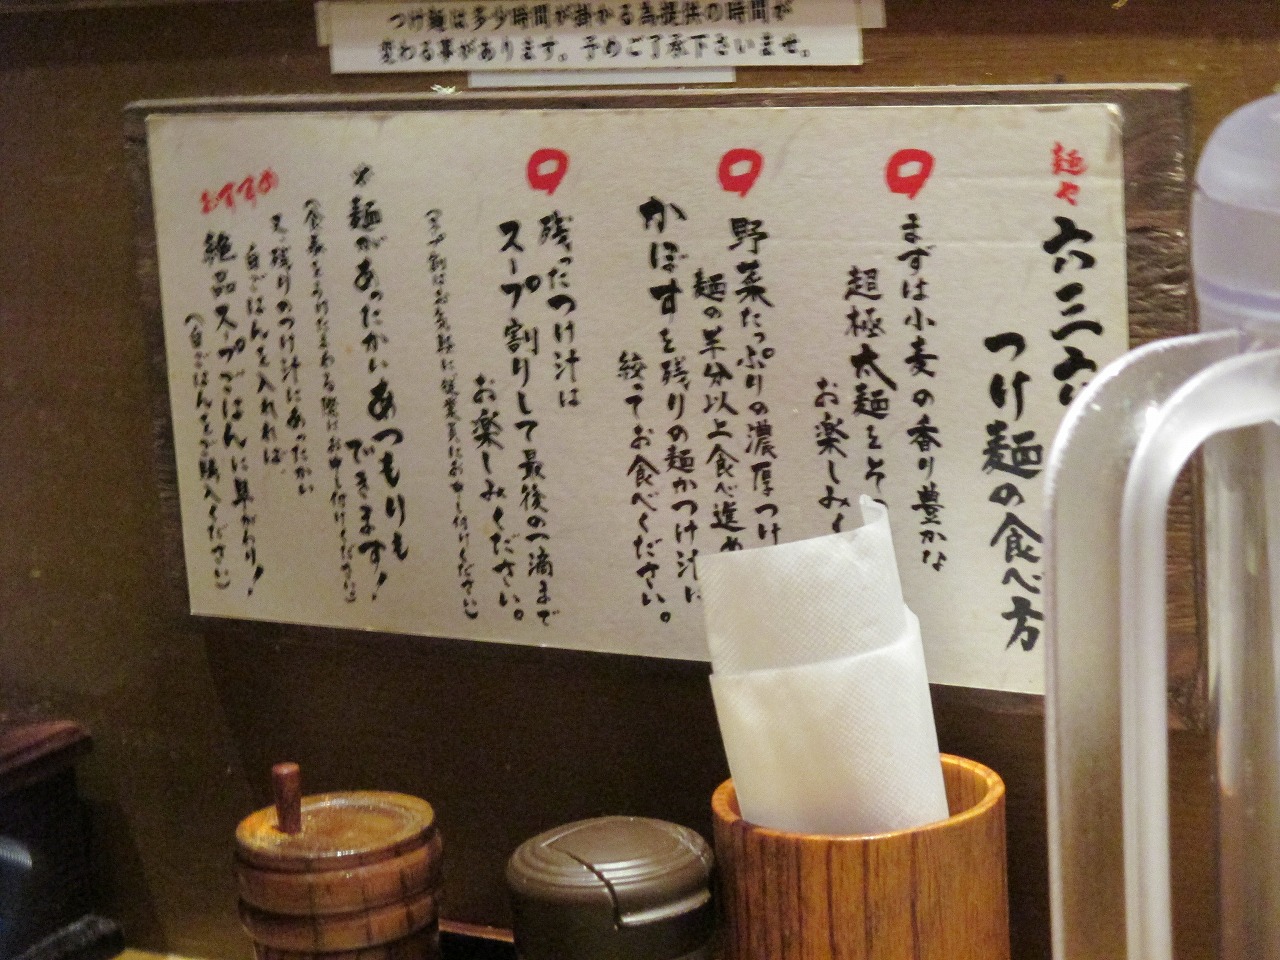 つけ麺は多少時間が掛かる為提供の時間が
変わる事があります。予めご了承下さいませ。
麺や
六三六
つけ麺の食べ方
まずは小麦の香り豊かな
超極太麺をそ
お楽しみく
野菜たっぷりの濃厚つけ
麺の半分以上食べ進め
かぼすを残りの麺かつけ汁に
絞ってお食べください。
残ったつけ汁は
スープ割りして最後の一滴まで
お楽しみください。
(スープ割はお気軽に従業員にお申し付けください)
※麺があったかいあつもりも
できます!
(食券をうけたまわる際にお申し付けください)
おすすめ
又、残りのつけ汁にあったかい
白ごはんを入れれば、
絶品スープごはんに早がわり!
(白ごはんをご購入ください)